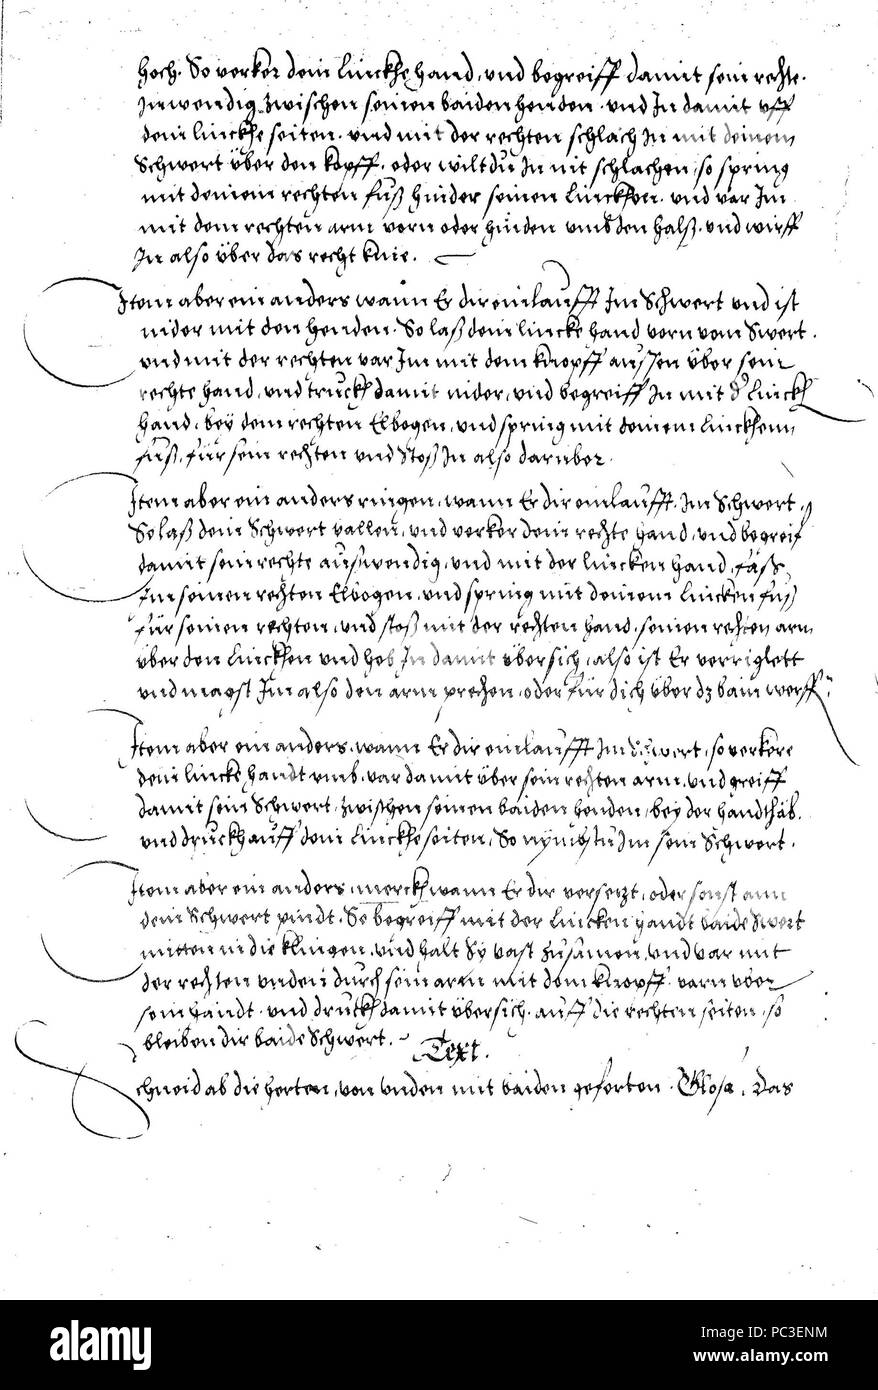 hoch. So verker dein linckhe hand, vnd begreiff damit sein rechte.
Inwendig zwischen seinen baiden henden. vnd In damit vff
dein linckhe seiten. vnd mit der rechten schlach In mit deinem
Schwert über den kopff. oder wilt du In nit schlachen, so spring
mit deinem rechten fuß hinder seinen linckhen. vnd var Im
mit dem rechten arm vorn oder hinden vmb den halß. vnd wirff
In also über das recht knie.
Item aber ein anders wann Er dir einlaufft Im Schwert vnd ist
nider mit den henden. So laß dein lincke hand vorn vom Swert.
vnd mit der rechten var Im mit dem knopff aussen über sein
rechte hand, vnd truckh damit nider, vnd begreiff In mit dr linckh
hand, bey dem rechten Elbogen, vnd spring mit deinem linckhenn
fuß, für sein rechten vnd Stoß In also darüber.
Item aber ein anders ringen, wann Er dir einlaufft. Im Schwert,
So laß dein Schwert vallen, vnd verker dein rechte hand, vnd begreif
damit sein rechte auswendig, vnd mit der lincken hand, fass
Im seinen rechten Elbogen, vnd spring mit deinem lincken fuß
für seinen rechten, vnd stoß mit der rechten hand. seinen rechten arm
über den linckhen vnd heb In damit übersich, also ist Er verriglett
vnd magst Im also den arm prechen, oder für dich über dz bain werff
Item aber ein anders. wann Er dir einlaufft Im Schwert, so verkere
dein lincke handt vmb. var damit über sein rechten arm. vnd greiff
damit sein Schwert, zwischen seinen baiden henden, bey der handthab.
vnd druckh auff dein linckhe seiten, So nymbstu Im sein Schwert.
Item aber ein anders, merckh wann Er dir versetzt, oder sonst ann
dein Schwert pindt. So begreiff mit der lincken handt baide Swert
mitten in die klingen, vnd halt Sy vast zusamen, vnd var mit
der rechten vnden durch sein arm mit dem knopff. varn über
sein handt. vnd druckh damit übersich. auff die rechten seiten, so
bleiben dir baide Schwert.
Text.
Schneid ab die herten, von vnden mit baiden geferten. Glosa. Das
alamy
PC3ENM
www.alamy.com